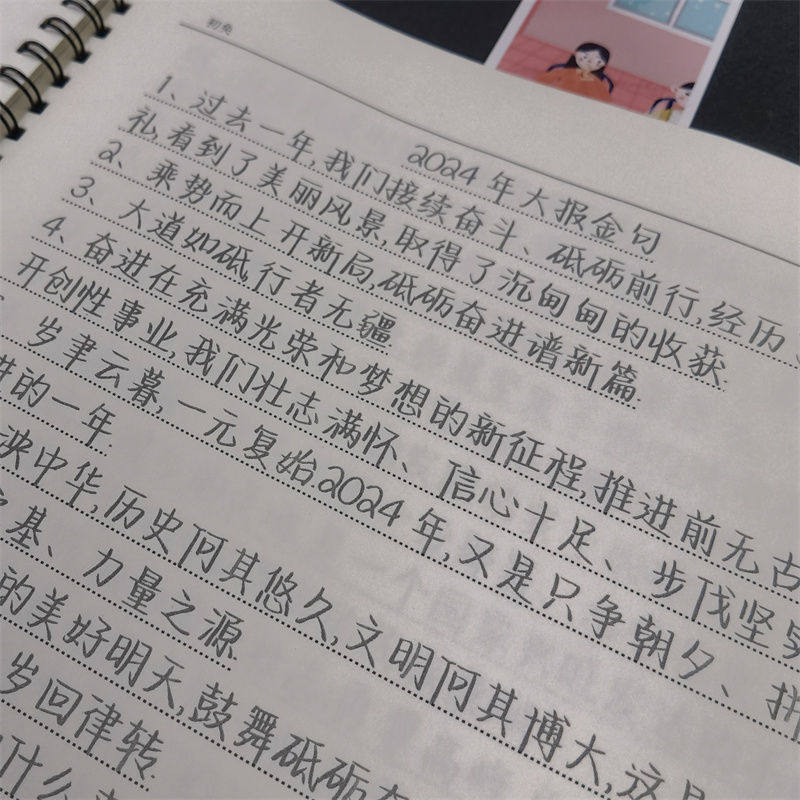 初兔
2024年大报金句
1、过去一年,我们接续奋斗、砥砺前行,经历
礼,看到了美丽风景,取得了沉甸甸的收获.
2、乘势而上开新局,砥砺奋进谱新篇.
3、大道如砥,行者无疆
4、奋进在充满光荣和梦想的新征程,推进前无古
开创性事业,我们壮志满怀、信心十足、步伐坚
岁聿云暮,一元复始.2024年,又是只争朝夕、拼
的一年
泱中华,历史何其悠久,文明何其博大,这是
基、力量之源
的美好明天,鼓舞砥砺
岁回律转
什么